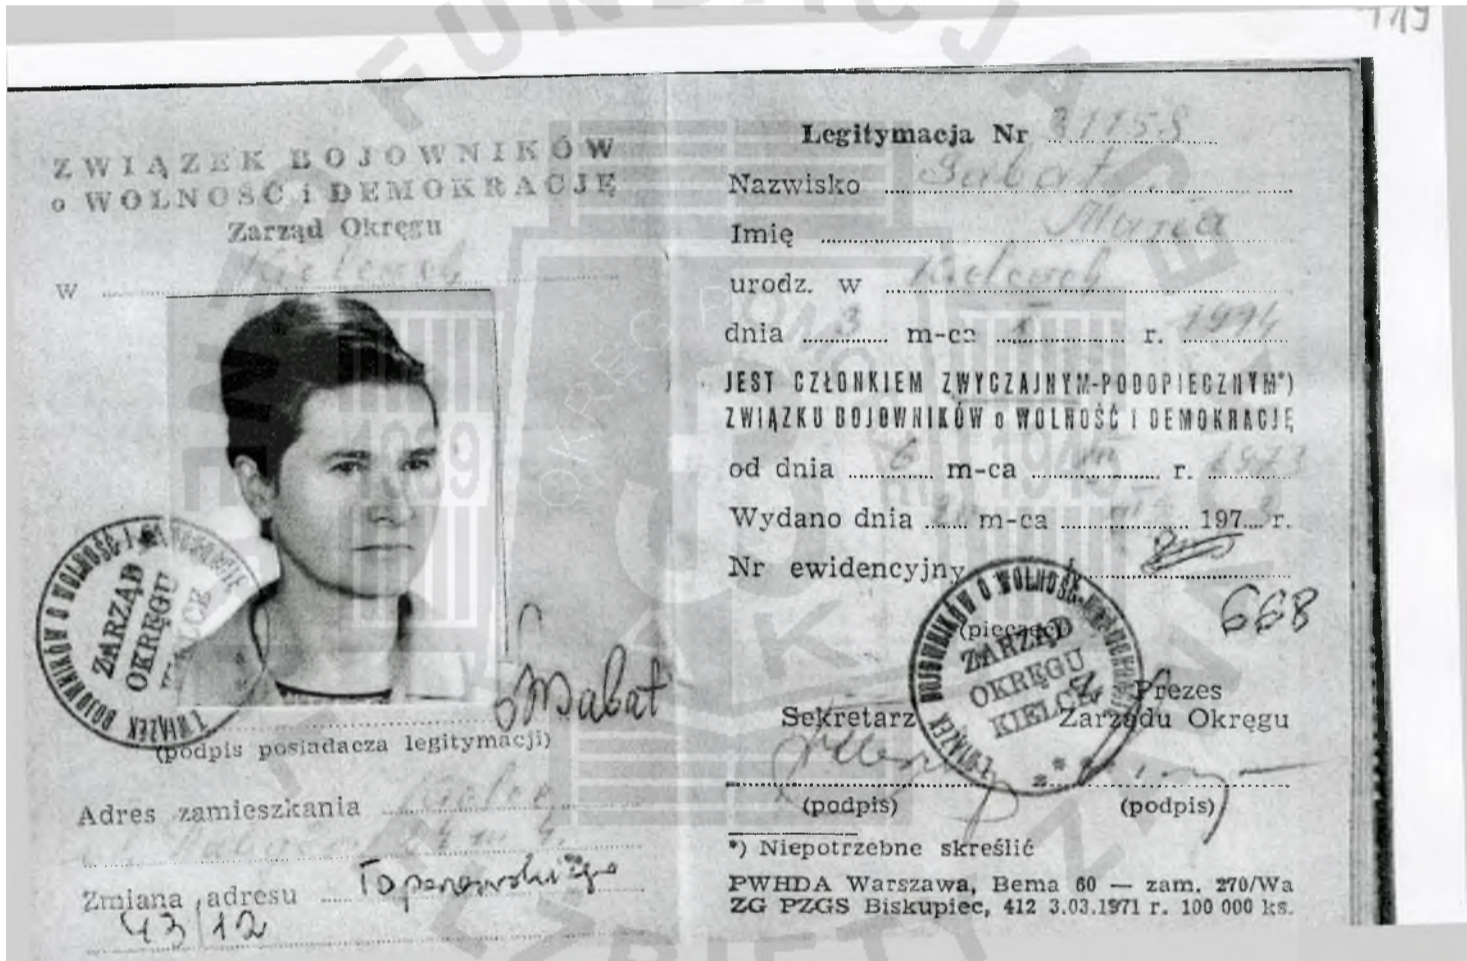 ZWIĄZEK BOJOWNIKÓW
o WOLNOŚĆ i DEMOKRACJĘ
Zarząd Okręgu
w Kielcach
ZWIĄZEK BOJOWNIKÓW O WOLNOŚĆ I
ZARZĄD
OKRĘGU
Sabat
(podpis posiadacza legitymacji)
Adres zamieszkania Kielce
Zmiana adresu
43/12
Legitymacja Nr
Nazwisko Sabat
Imię Maria
urodz. w Kielcach
dnia 3 m-ca r.
JEST CZŁONKIEM ZWYCZAJNYM-PODOPIECZNYM*)
ZWIĄZKU BOJOWNIKÓW o WOLNOŚĆ i DEMOKRACJĘ
od dnia 6 m-ca r. 1973
Wydano dnia m-ca 1973 r.
Nr ewidencyjny
668
(pieczęć)
ZWIĄZEK BOJOWNIKÓW O WOLNOŚĆ
ZARZĄD
OKRĘGU
KIELCE
Sekretarz
Prezes
Zarządu Okręgu
(podpis) (podpis)
*) Niepotrzebne skreślić
PWHDA Warszawa, Bema 60 — zam. 270/Wa
ZG PZGS Biskupiec, 412 3.03.1971 r. 100 000 ks.
1939
1945
OKRĘG POMORZE
AK